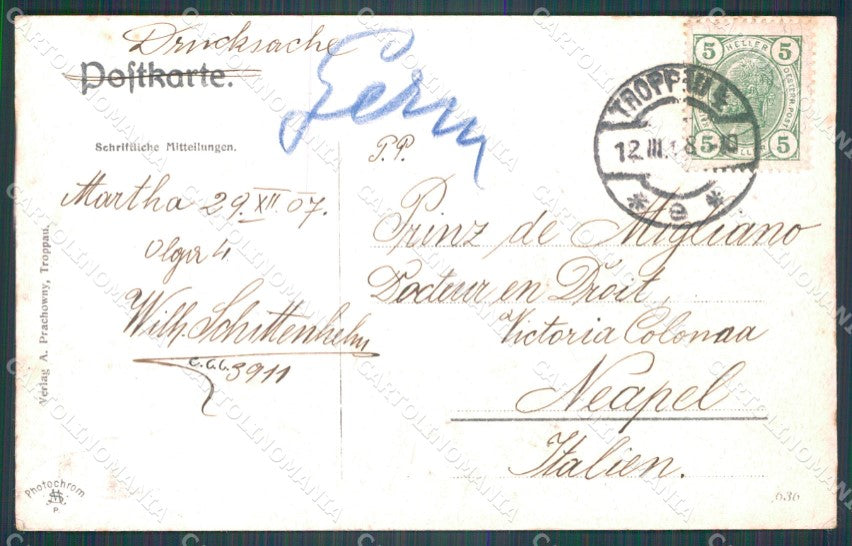 Drucksache
Postkarte.
Schriftliche Mitteilungen.
Martha 29. XII 07.
Olga 4
Wilh. Schittenhelm
C.G.C. 3911
P.P.
Prinz de Migliano
Docteur en Droit,
Victoria Colonaa
Neapel
Italien.
5 HELLER 5
5 HELLER 5
TROPPAU
12.III.
* e *
Verlag A. Prachowny, Troppau.
Photochrom
P.
636
CARTOLINOMANIA